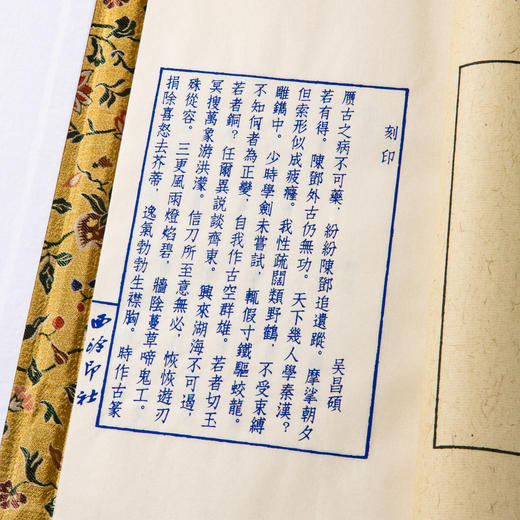 刻印
吴昌碩
贋古之病不可藥，紛紛陳鄧追遺蹤。摩挲朝夕
若有得。陳鄧外古仍無功。天下幾人學秦漢？
但索形似成疲癃。我性疏闊類野鶴，不受束縛
雕鐫中。少時學劍未嘗試，輒假寸鐵驅蛟龍。
不知何者為正變，自我作古空群雄。若者切玉
若者銅？任爾異說談齊東。興來湖海不可遏，
冥搜萬象游洪濛。信刀所至意無必，恢恢遊刃
殊從容。三更風雨燈焰碧，牆陰蔓草啼鬼工。
捐除喜怒去芥蒂，逸氣勃勃生襟胸。時作古篆
西泠印社